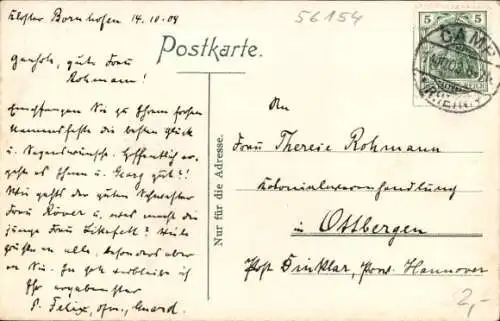 Kloster Bornhofen 14.10.09
56154
Postkarte.
Geehrte, gute Frau
Rohmann!
Empfangen Sie zu Ihrem hohen
Namensfeste die besten Glück
u. Segenswünsche. Hoffentlich er-
geht es Ihnen u. Georg gut!?
Wie gehts der guten Schwester
Frau Röver u. was macht die
junge Frau
grüßen an alle, besonders aber
an Sie. In
Ihr ergebenster
P. Felix, ofm., Guard.
Nur für die Adresse.
An
Frau Therese Rohmann
Kolonialwarenhandlung
in Ottbergen
Post Dinklar, Prov. Hannover
5 5
CAMP
(RHEIN)
2,-